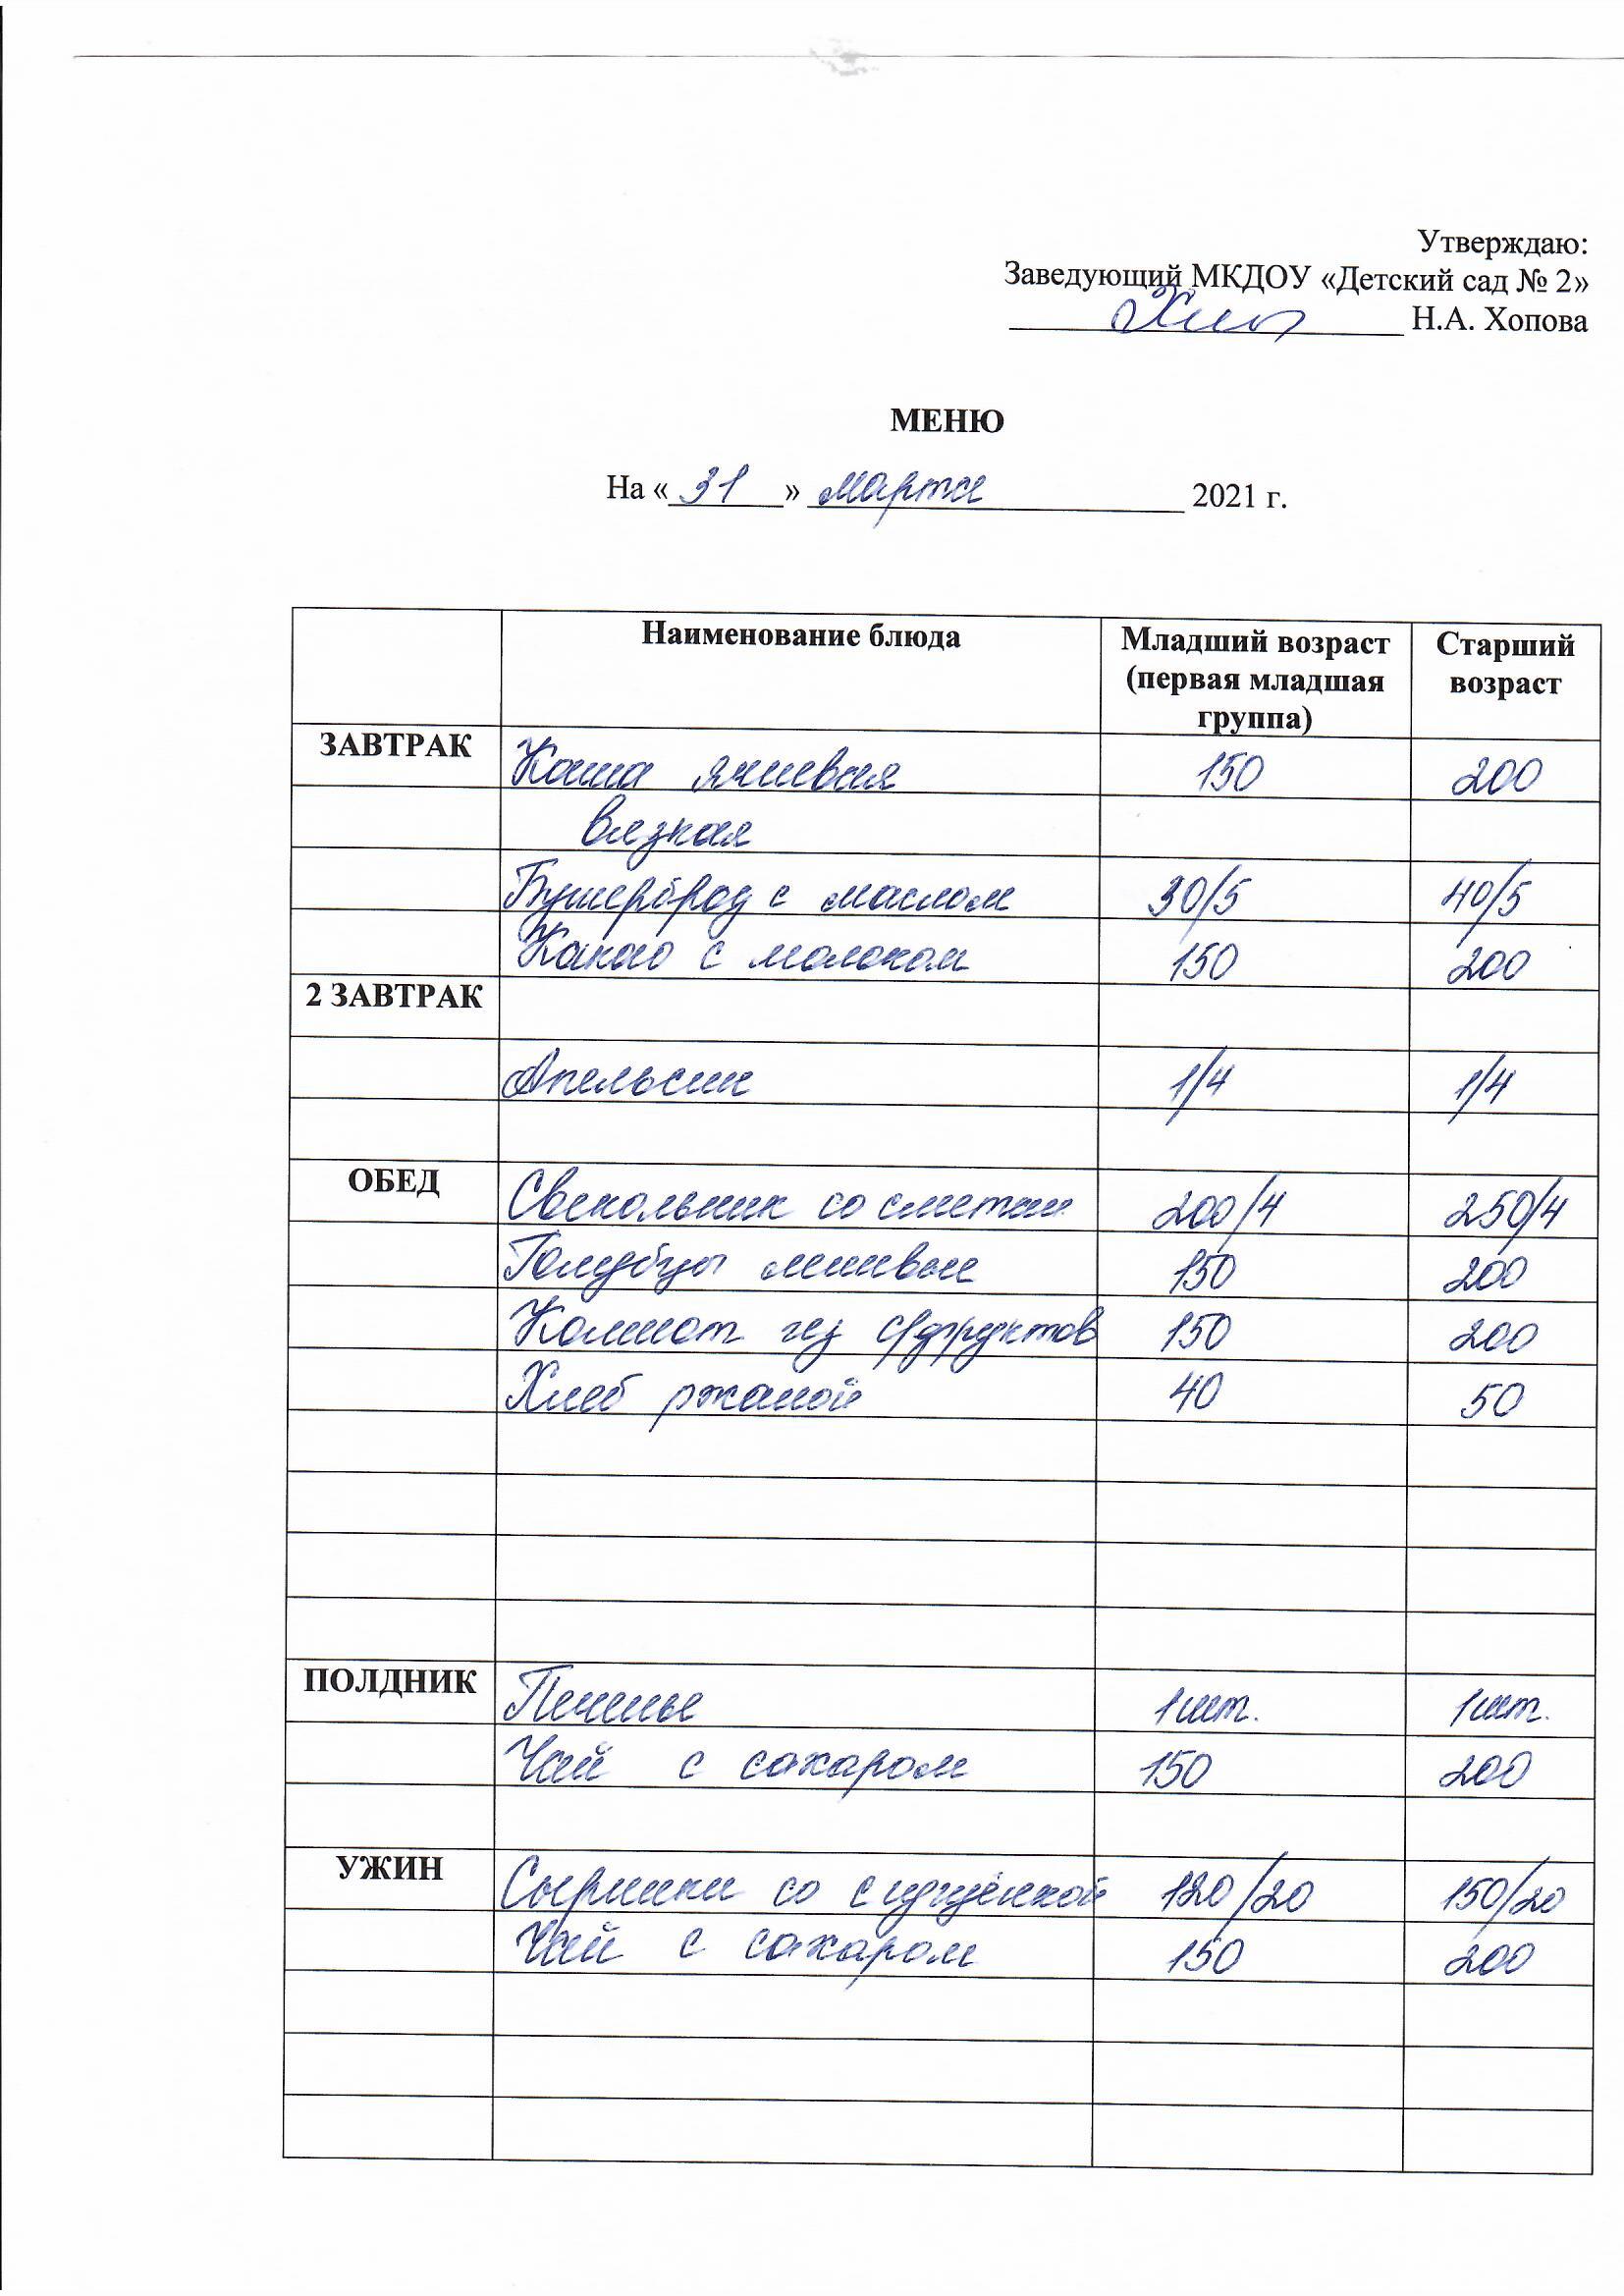 Утверждаю:
Заведующий МКДОУ «Детский сад № 2»
Н.А. Хопова
МЕНЮ
На « 31 » марта 2021 г.
Наименование блюда Младший возраст (первая младшая группа) Старший возраст
ЗАВТРАК Каша ячневая 150 200
вязкая
Бутерброд с маслом 30/5 40/5
Какао с молоком 150 200
2 ЗАВТРАК
Апельсин 1/4 1/4
ОБЕД Свекольник со сметан 200/4 250/4
Голубцы ленивые 150 200
Компот из с/фруктов 150 200
Хлеб ржаной 40 50
ПОЛДНИК Печенье 1шт. 1шт.
Чай с сахаром 150 200
УЖИН Сырники со сгущёнкой 120/20 150/20
Чай с сахаром 150 200